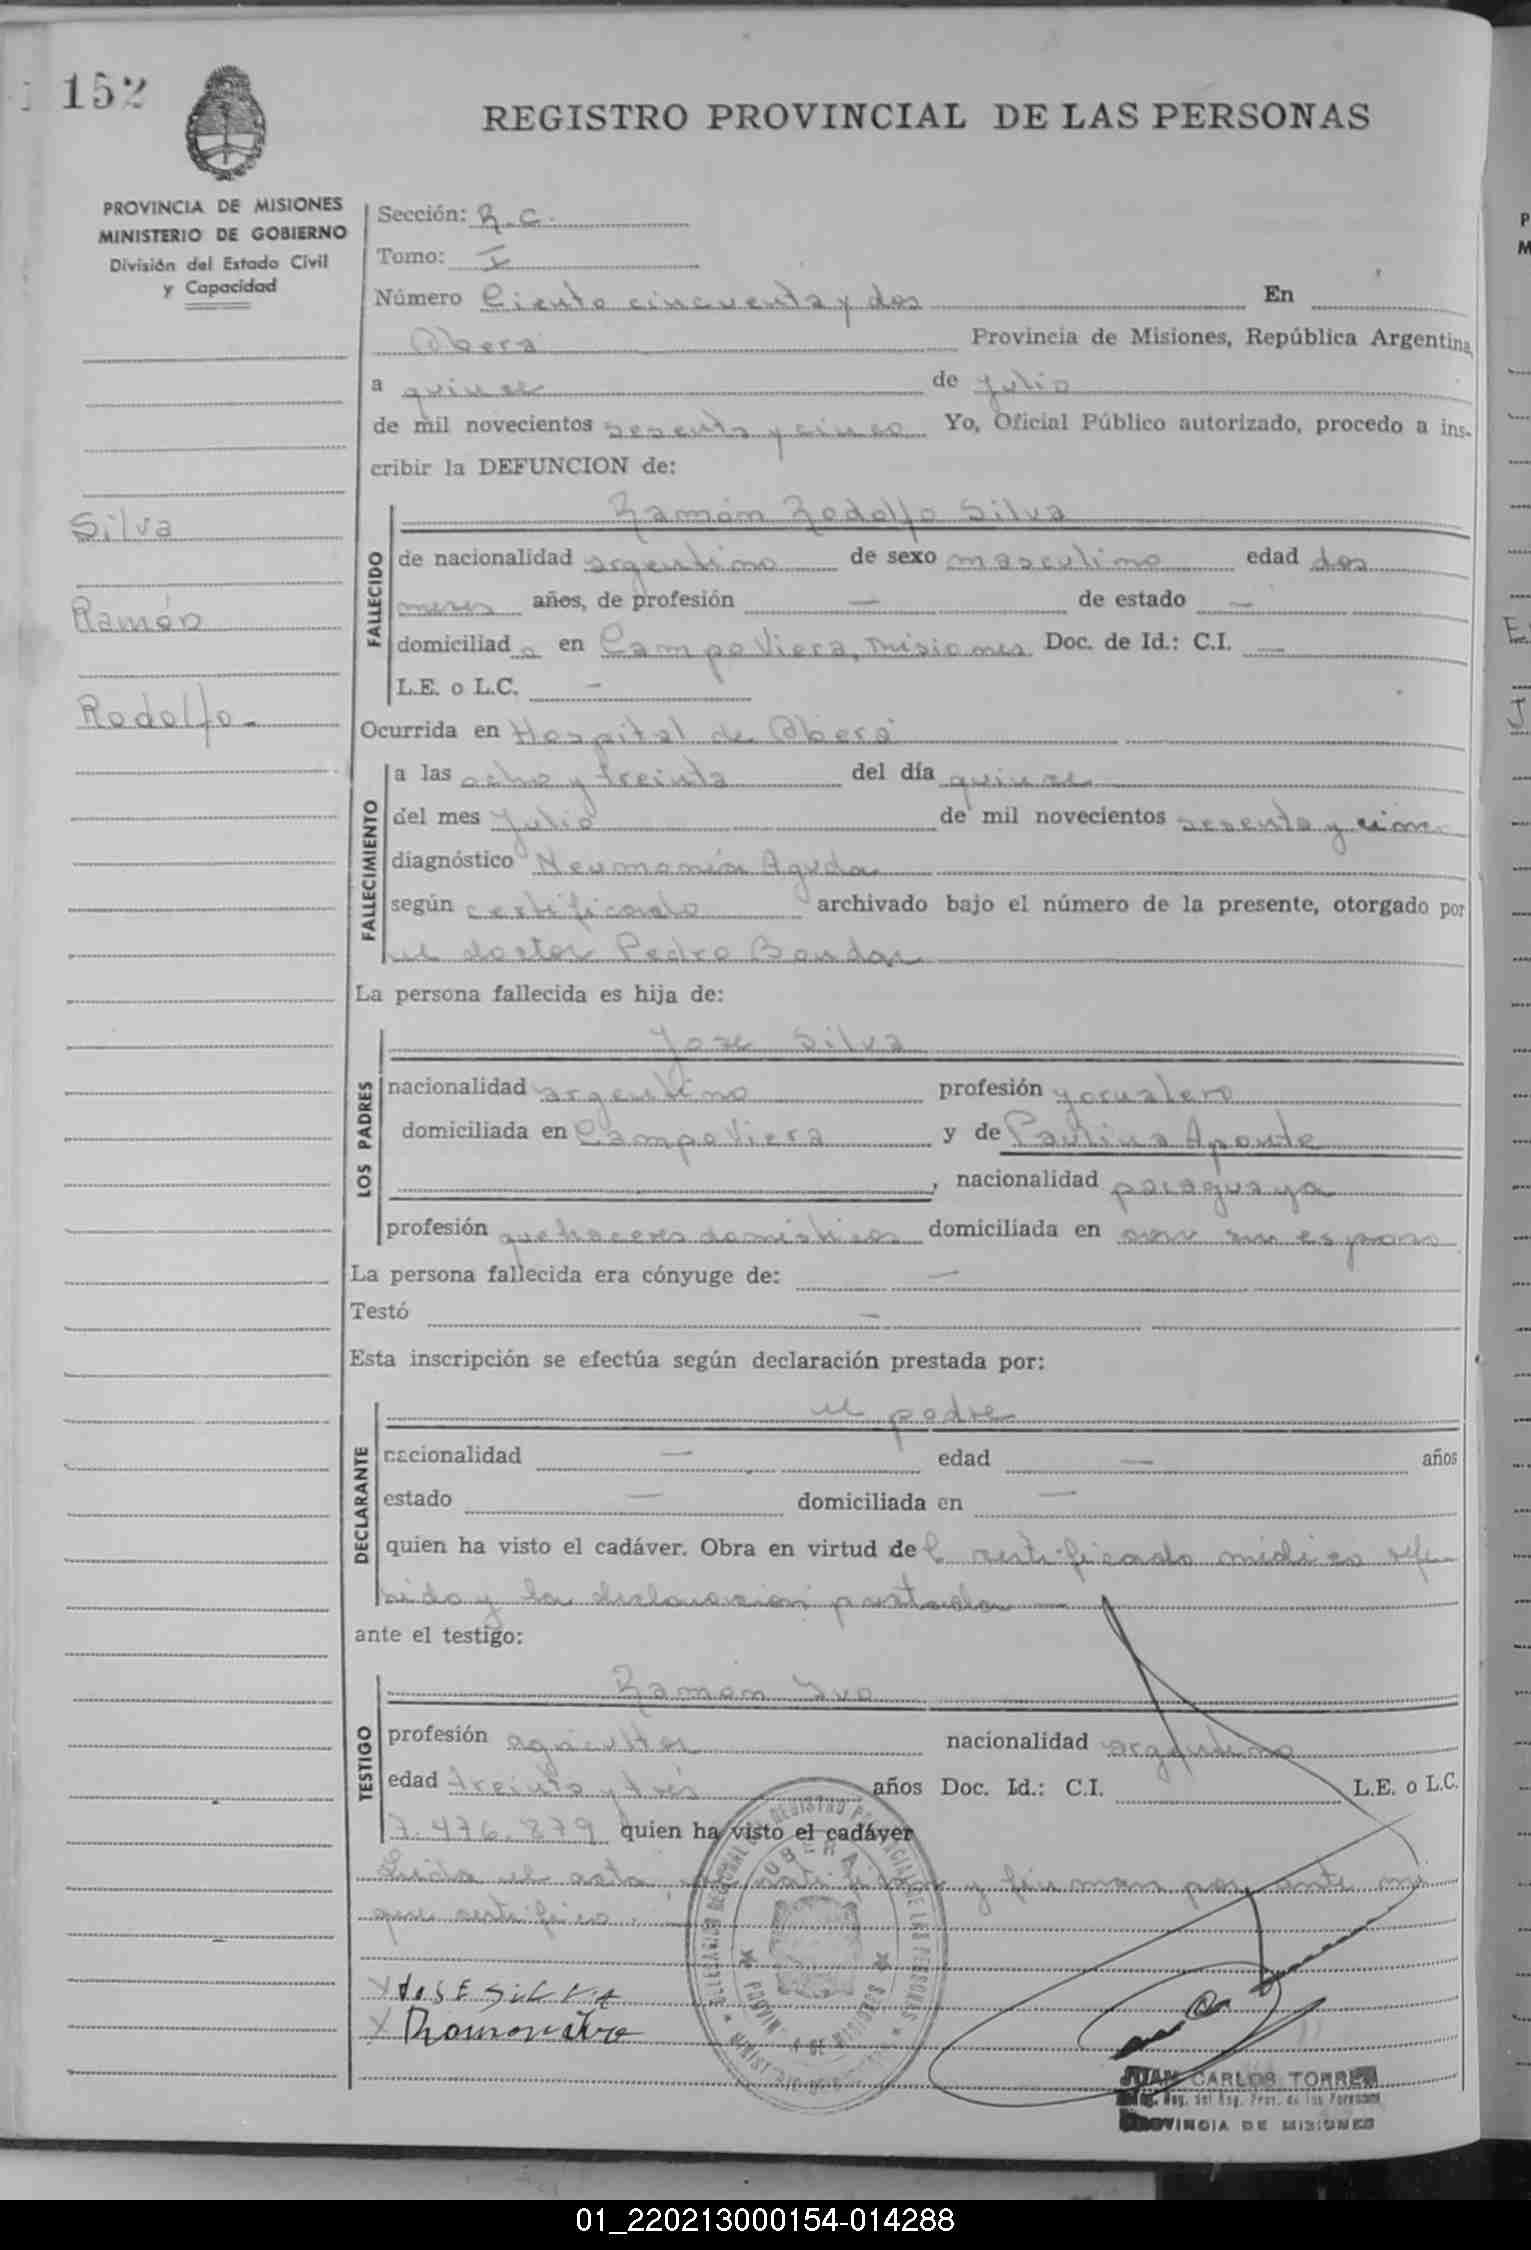 152
REGISTRO PROVINCIAL DE LAS PERSONAS
PROVINCIA DE MISIONES
MINISTERIO DE GOBIERNO
División del Estado Civil
y Capacidad
Silva
Ramón
Rodolfo.-
Sección: R.C.
Tomo: I
Número Ciento cincuenta y dos En
Oberá Provincia de Misiones, República Argentina,
a quince de julio
de mil novecientos sesenta y cinco Yo, Oficial Público autorizado, procedo a ins-
cribir la DEFUNCION de:
FALLECIDO
Ramón Rodolfo Silva
de nacionalidad argentino de sexo masculino edad dos
meses años, de profesión — de estado —
domiciliad o en Campo Viera, Misiones Doc. de Id.: C.I. —
L.E. o L.C. —
Ocurrida en Hospital de Oberá
FALLECIMIENTO
a las ocho y treinta del día quince
del mes julio de mil novecientos sesenta y cinco
diagnóstico Neumonía Aguda
según certificado archivado bajo el número de la presente, otorgado por
el doctor Pedro Bondar
La persona fallecida es hija de:
LOS PADRES
José Silva
nacionalidad argentino profesión yerbatero
domiciliada en Campo Viera y de Paulina Aponte
, nacionalidad paraguaya
profesión quehaceres domésticos domiciliada en con su esposo
La persona fallecida era cónyuge de: —
Testó —
Esta inscripción se efectúa según declaración prestada por:
DECLARANTE
el padre
nacionalidad — edad — años
estado — domiciliada en —
quien ha visto el cadáver. Obra en virtud de l certificado médico refe-
rido y la declaración prestada —
ante el testigo:
TESTIGO
Ramón
profesión agricultor nacionalidad argentino
edad treinta y tres años Doc. Id.: C.I. L.E. o L.C.
7.476.879 quien ha visto el cadáver
Leída el acta, la ratifican y firman por ante mí
que certifico.
X JOSE SILVA
X Ramon
OBERA
JUAN CARLOS TORRES
PROVINCIA DE MISIONES
01_220213000154-014288